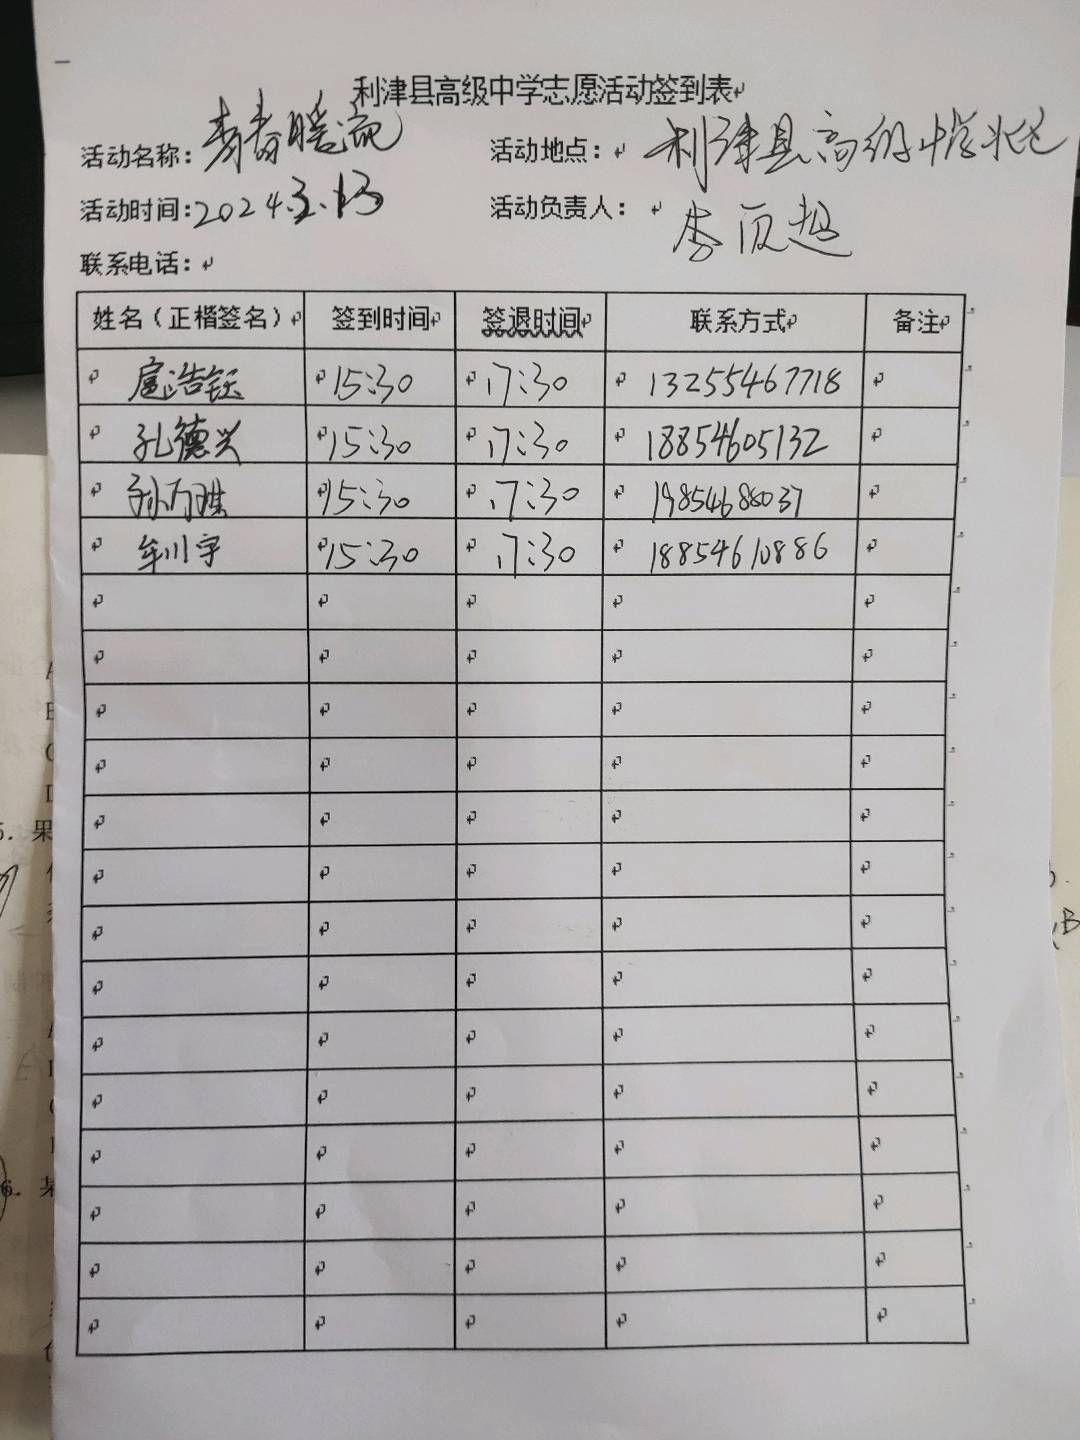 利津县高级中学志愿活动签到表
活动名称：青春暖流 活动地点：利津县高级中学北
活动时间：2024.3.13 活动负责人：李
联系电话：
姓名（正楷签名） 签到时间 签退时间 联系方式 备注
扈浩钰 15:30 17:30 13255467718
孔德兴 15:30 17:30 18854605132
孙万 15:30 17:30 19854688037
牟川宇 15:30 17:30 18854610886
果
6.